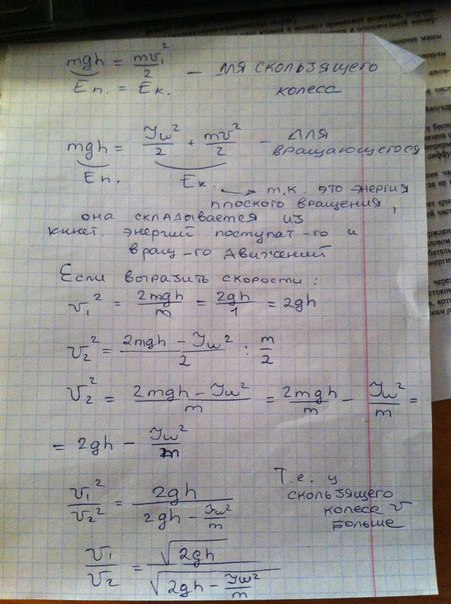 mgh = mv₁²/2 — для скользящего
Eп. = Eк. колеса
mgh = Jω²/2 + mv²/2 — для
вращающегося
Eп. Eк.
→ т.к. это энергия
плоского вращения,
она складывается из
кинет. энергий поступат-го и
вращ-го движений
Если выразить скорости:
v₁² = 2mgh/m = 2gh/1 = 2gh
v₂² = (2mgh − Jω²)/2 : m/2
v₂² = (2mgh − Jω²)/m = 2mgh/m − Jω²/m =
= 2gh − Jω²/m
v₁²/v₂² = 2gh/(2gh − Jω²/m)
Т.е. у
скользящего
колеса v
больше
v₁/v₂ = √(2gh)/√(2gh − Jω²/m)